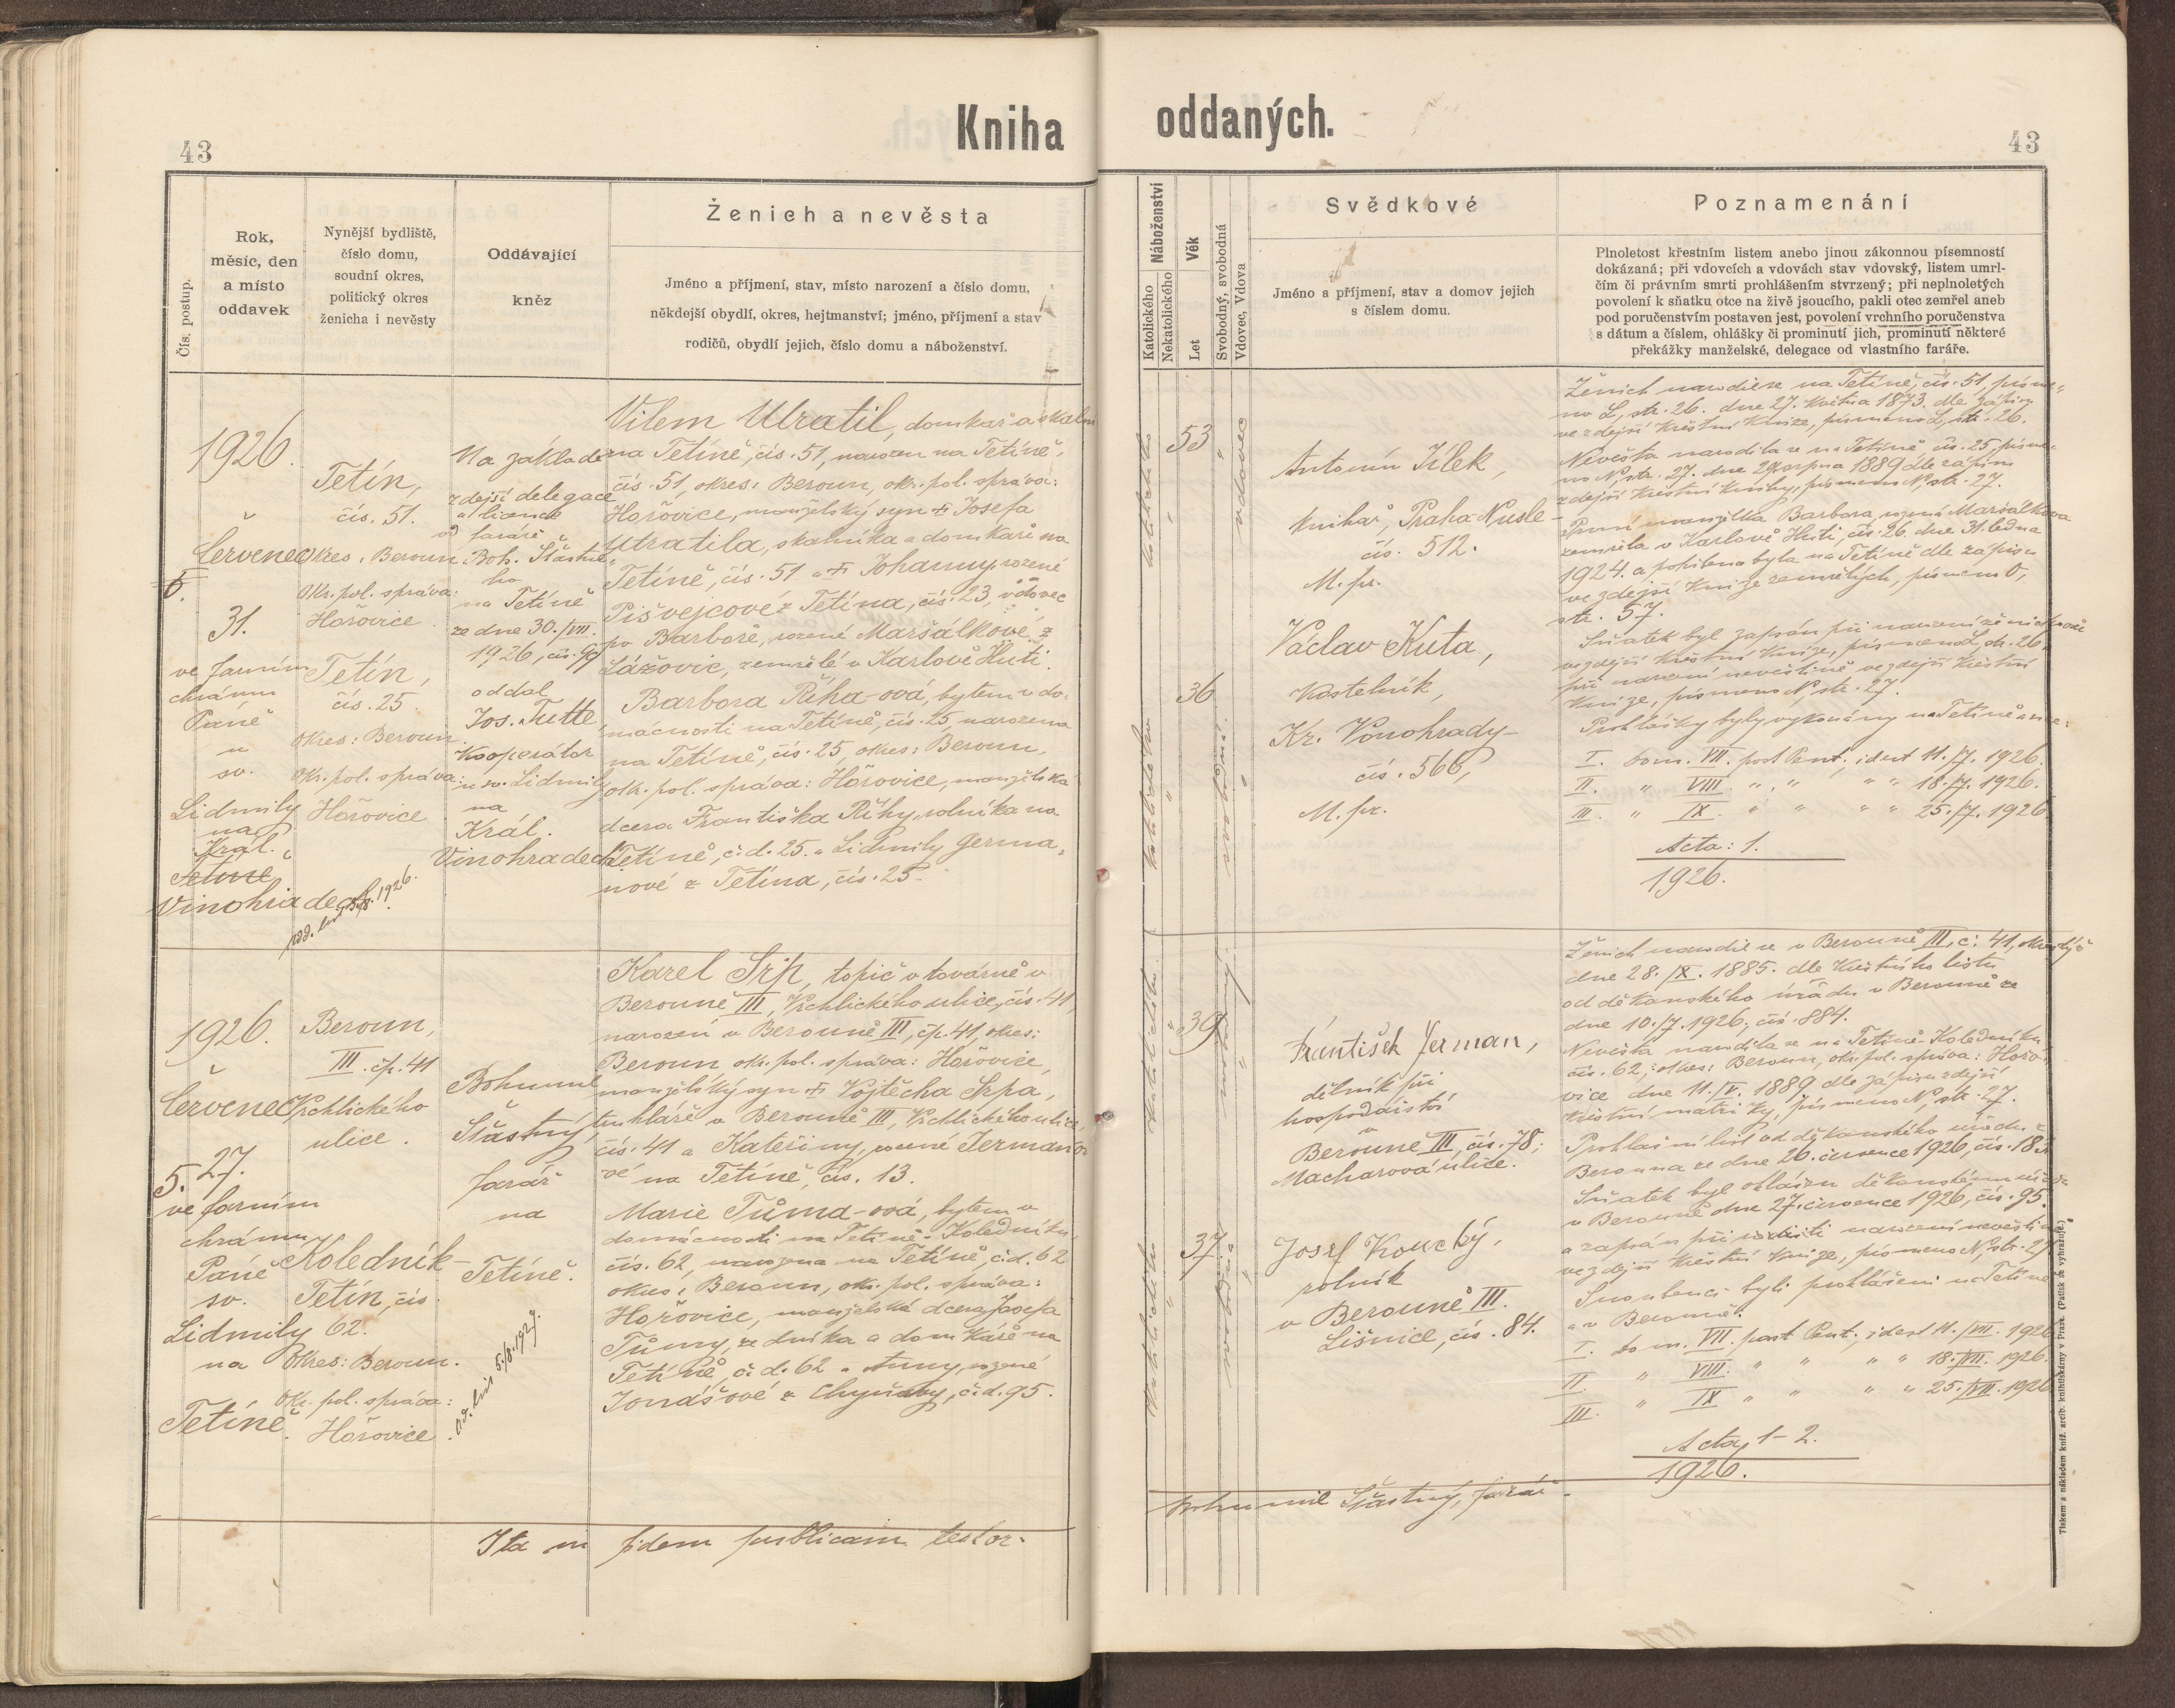 43
Kniha
Čís. postup.
Rok,
měsíc, den
a místo
oddavek
Nynější bydliště,
číslo domu,
soudní okres,
politický okres
ženicha i nevěsty
Oddávající
kněz
Ženich a nevěsta
Jméno a příjmení, stav, místo narození a číslo domu,
někdejší obydlí, okres, hejtmanství; jméno, příjmení a stav
rodičů, obydlí jejich, číslo domu a náboženství.
1926.
Červenec
6.
31.
ve farním
chrámu
Páně
u
sv.
Lidmily
na
Král.
Tetíně
Vinohradech
Tetín,
čís. 51.
Okres: Beroun
Okr. pol. správa:
Hořovice.
Tetín,
čís. 25.
Okres: Beroun.
Okr. pol. správa:
Hořovice
Na základě
zdejší delegace
a licence
od faráře
Boh. Šťastné-
ho
na Tetíně
ze dne 30./VII.
1926, čís.
oddal
Jos. Tutte,
Kooperátor
u sv. Lidmily
na
Král.
Vinohradech
Vilem Utratil, domkař a skalník
na Tetíně, čís. 51, narozen na Tetíně,
čís. 51, okres: Beroun, okr. pol. správa:
Hořovice, manželský syn † Josefa
Utratila, skalníka a domkáře na
Tetíně, čís. 51. a † Johanny, rozené
Pišvejcové z Tetína, čís. 23, vdovec
po Barboře, rozené Maršálkové z
Lážovic, zemřelé v Karlově Huti.
Barbora Říha-ová, bytem v do-
mácnosti na Tetíně, čís. 25, narozena
na Tetíně, čís. 25, okres: Beroun,
okr. pol. správa: Hořovice, manželská
dcera Františka Říhy, rolníka na
Tetíně, č.d. 25. a Lidmily Germa-
nové z Tetína, čís. 25.
1926.
Červenec
5. 27.
ve farním
chrámu
Páně
sv.
Lidmily
na
Tetíně.
Beroun,
III. čp. 41
Vrchlického
ulice.
Koledník-
Tetín, čís.
62.
Okres: Beroun.
Okr. pol. správa:
Hořovice.
Bohumil
Šťastný,
farář
na
Tetíně.
Karel Srp, topič v továrně v
Berouně III, Vrchlického ulice, čís. 41,
narozen v Berouně III, čp. 41, okres:
Beroun, okr. pol. správa: Hořovice,
manželský syn † Vojtěcha Srpa,
truhláře v Berouně III, Vrchlického ulice,
čís. 41 a Kateřiny, rozené Jermano-
vé na Tetíně, čís. 13.
Marie Tůma-ová, bytem v
domácnosti na Tetíně-Koledníku,
čís. 62, narozena na Tetíně, č.d. 62
okres: Beroun, okr. pol. správa:
Hořovice, manželská dcera Josefa
Tůmy, zedníka a domkáře na
Tetíně, č.d. 62 a Anny, rozené
Jonášové z Chyňavy, č.d. 95.
Ita in fidem publicam testor.
oddaných.
43
Náboženství
Katolického
Nekatolického
Věk
Let
Svobodný, svobodná
Vdovec, Vdova
Svědkové
Jméno a příjmení, stav a domov jejich
s číslem domu.
Poznamenání
Plnoletost křestním listem anebo jinou zákonnou písemností
dokázaná; při vdovcích a vdovách stav vdovský, listem umrl-
čím či právním smrti prohlášením stvrzený; při neplnoletých
povolení k sňatku otce na živě jsoucího, pakli otec zemřel aneb
pod poručenstvím postaven jest, povolení vrchního poručenstva
s dátum a číslem, ohlášky či prominutí jich, prominutí některé
překážky manželské, delegace od vlastního faráře.
53
vdovec
Antonín Jílek,
Knihař, Praha-Nusle-
čís. 512.
M. pr.
36
Václav Kuta,
Kostelník,
Kr. Vinohrady-
čís. 566,
M. pr.
Ženich narodil se na Tetíně, čís. 51, písme-
no L, str. 26. dne 27. Května 1873. dle zápisu
ve zdejší Křestní Knize, písmeno L, str. 26.
Nevěsta narodila se na Tetíně čís. 25, písme-
no N, str. 27. dne srpna 1889 dle zápisu
zdejší křestní knihy, písmeno N, str. 27.
První manželka Barbora, rozená Maršálkova
zemřela v Karlově Huti, čís. 26. dne 31. ledna
1924. a pohřbena byla na Tetíně dle zápisu
ve zdejší Knize zemřelých, písmeno O,
str. 57.
Sňatek byl zapsán při narození ženichově
ve zdejší Křestní Knize, písmeno L, str. 26.
při narození nevěstině ve zdejší Křestní
Knize, písmeno N, str. 27.
Prohlášky byly vykonány na Tetíně a sice:
I. dom. VII. post Pent., id est 11./7. 1926.
II. " VIII. " " " " 18./7. 1926.
III. " IX. " " " " 25./7. 1926.
Acta: 1.
1926.
39
František Jerman,
dělník při
hospodářství
v
Berouně III, čís. 78;
Macharová ulice.
37
Josef Koucký,
rolník
v Berouně III.
Lišnice, čís. 84.
Ženich narodil se v Berouně III, č. 41,
dne 28./IX. 1885. dle Křestního listu
od děkanského úřadu v Berouně ze
dne 10./7. 1926, čís. 884.
Nevěsta narodila se na Tetíně-Koledníku
čís. 62, okres: Beroun, okr. pol. správa: Hořo-
vice dne 11./V. 1889 dle zápisu zdejší
křestní matriky, písmeno N, str. 27.
Prohlašní list od děkanského úřadu z
Berouna ze dne 26. července 1926, čís.
Sňatek byl ohlášen děkanskému úřadu
v Berouně dne 27. července 1926, čís. 95.
a zapsán při narození nevěstině
ve zdejší Křestní Knize, písmeno N, str. 27.
Snoubenci byli prohlášeni na Tetíně
a v Berouně:
I. dom. VII. post Pent., id est 11./VII. 1926
II. " VIII. " " " " 18./VII. 1926.
III. " IX " " " " 25./VII. 1926
Acta, 1-2.
1926.
Bohumil Šťastný, farář.